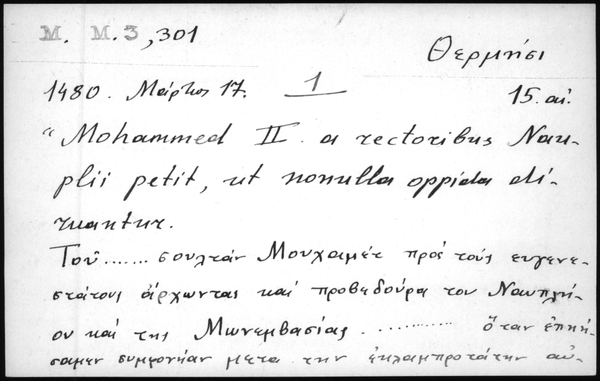 M. M. 3,301
Θερμήσι
1480. Μάρτιος 17. 1 15. αἰ.
"Mohammed II. a rectoribus Nau-
plii petit, ut nonulla oppida di-
ruantur.
Τοῦ ....... σουλτάν Μουχαμέτ πρός τούς ευγενε-
στάτους άρχωντας καί προβεδούρα του Ναυπλή-
ου καί της Μωνεμβασίας ............ ὅταν ἐπηή-
σαμεν συμφονήαν μετα την ἐκλαμπροτάτην αὐ-